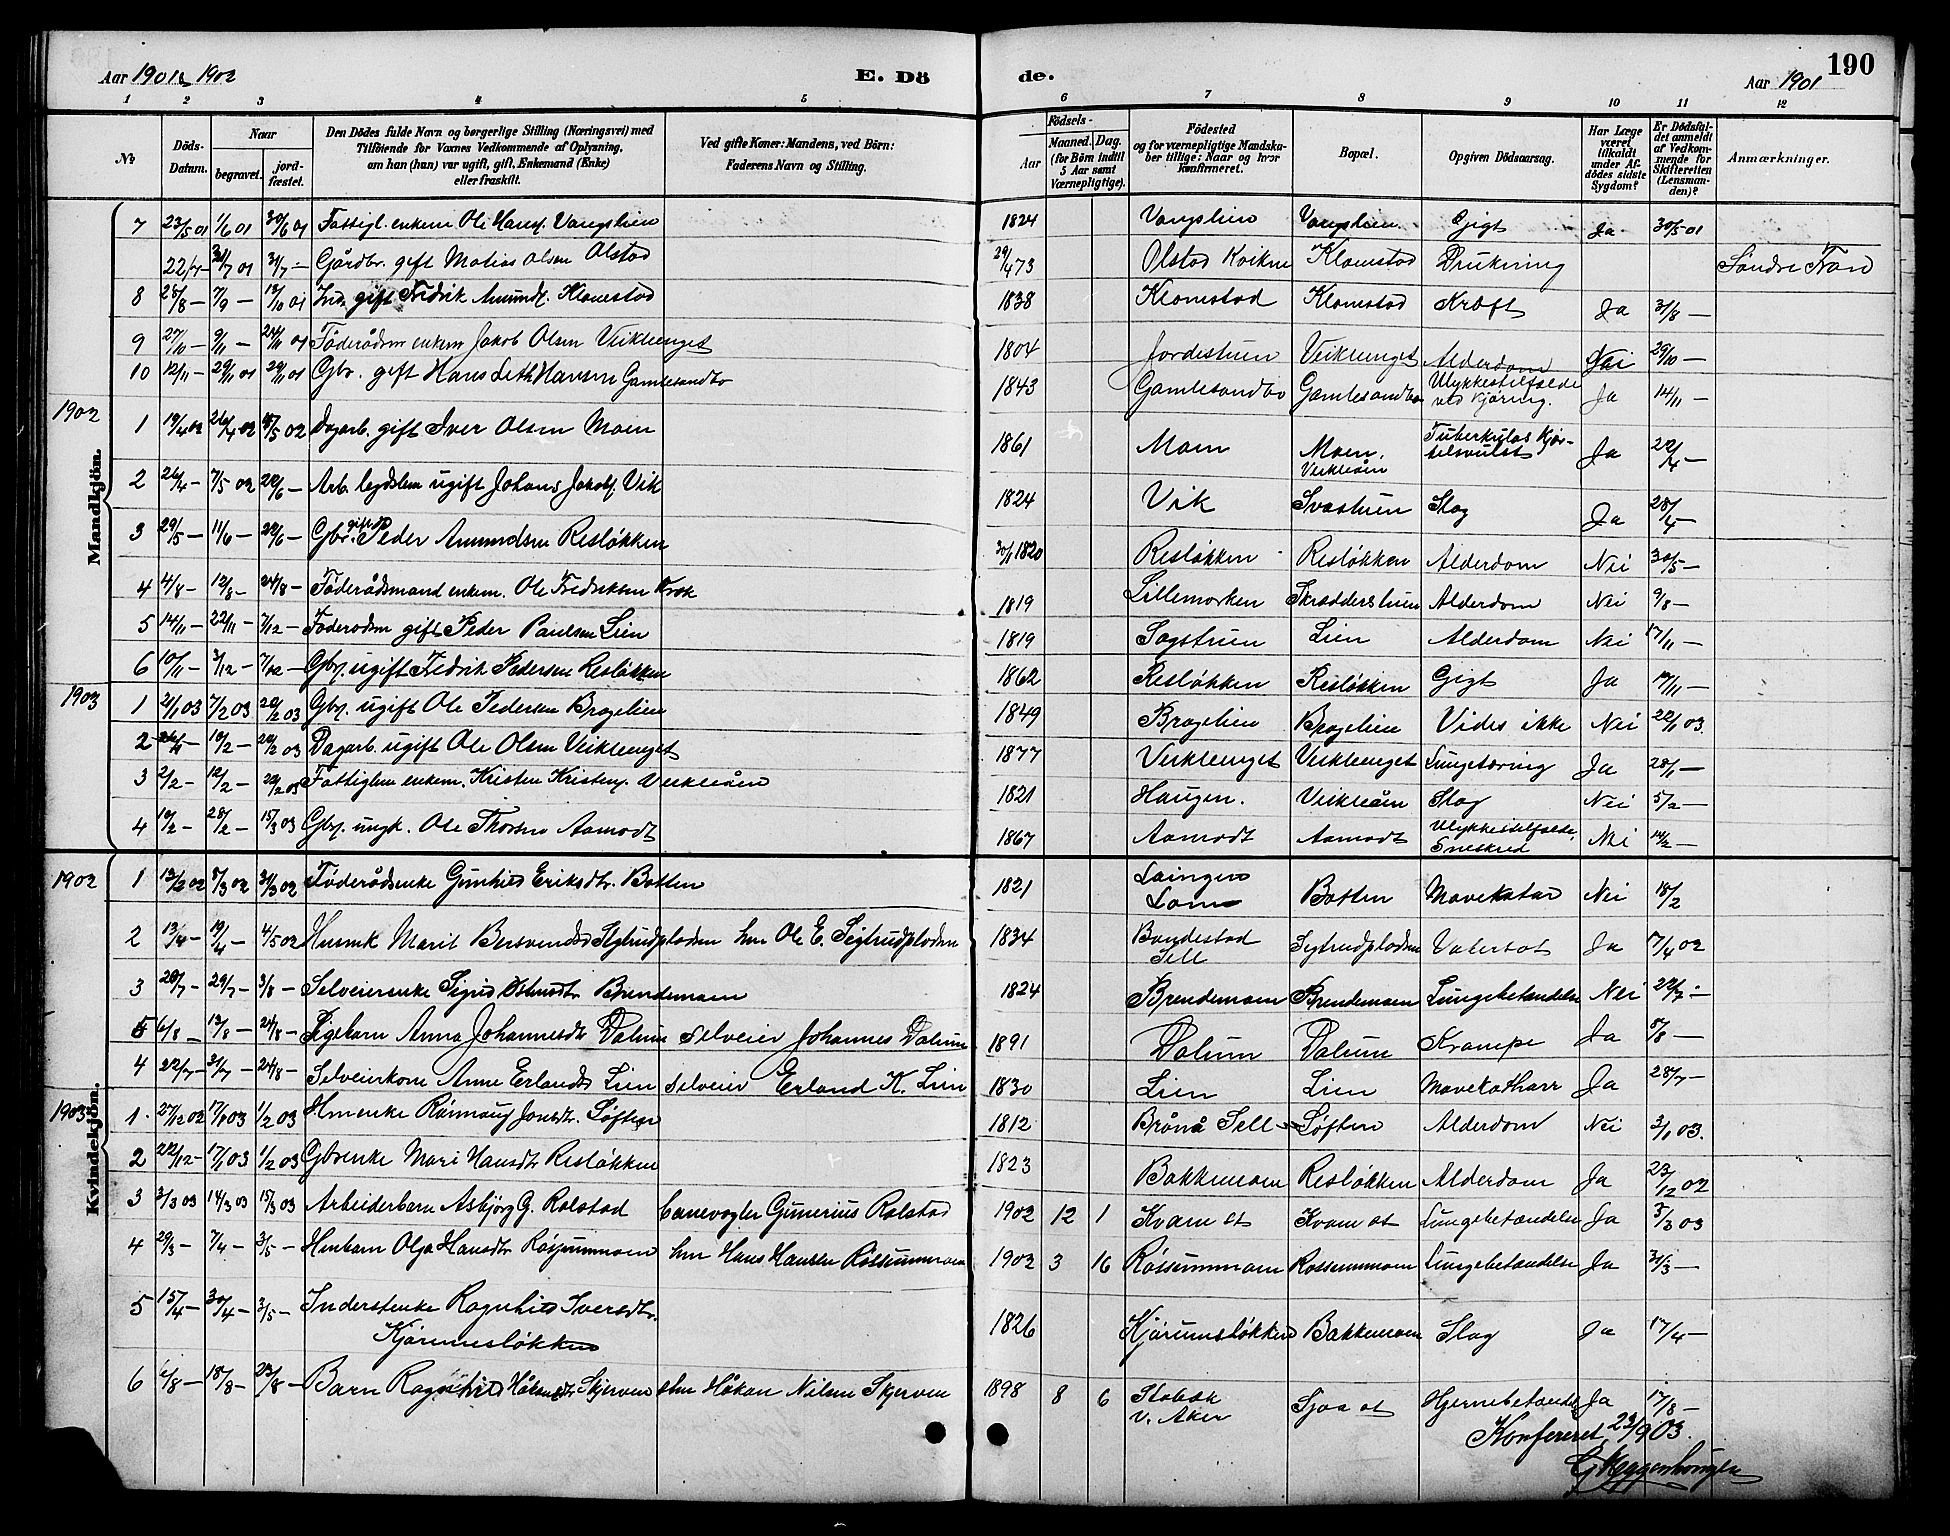 190
Aar 1901 & 1902 E. Döde. Aar 1901
1 2 3 4 5 6 7 8 9 10 11 12
No
Döds-Datum.
Naar
begravet.
jord-fæstet.
Den Dödes fulde Navn og borgerlige Stilling (Næringsvei) med
Tilföiende for Voxnes Vedkommende af Oplysning,
om han (hun) var ugift, gift, Enkemand (Enke)
eller fraskilt.
Ved gifte Koner: Mandens, ved Börn:
Faderens Navn og Stilling.
Födsels-
Aar
Maaned. Dag.
(for Börn indtil
5 Aar samt
Værnepligtige).
Födested
og for værnepligtige Mandska-
ber tillige: Naar og hvor
Konfirmeret.
Bopæl.
Opgiven Dödsaarsag.
Har Læge
været
tilkaldt
under Af-
dödes sidste
Sygdom?
Er Dödsfal-
det anmeldt
af Vedkom-
mende for
Skifteretten
(Lensman-
den)?
Anmærkninger.
Mandkjön.
7 23/5 01 1/6 01 30/6 01 Fattigl. enkem Ole Hansf. Vangslien 1824 Vangslien Vangslien Gigt Ja 30/5 01
22/7 – 31/7 01 31/7 – Gårdbr. gift Matias Olsen Olstad 29/4 73 Olstad Kvikne Klomestad Drukning Söndre Fron
8 28/8 – 7/9 – 18/10 01 Ind. gift Fredrik Amundf. Klomestad 1838 Klomestad Klomestad Kræft Ja 31/8 –
9 27/10 – 9/11 – 24/11 01 Föderådsm enkem Jakob Olsen Veiklenget 1804 Jordestuen Veiklenget Alderdom Nei 29/10 –
10 12/11 – 29/11 01 29/11 01 Gbr. gift Hans Leth Hansen Gamlesandbo 1843 Gamlesandbo Gamlesandbo Ulykkestilfælde ved Kjøring. Ja 14/11 –
1902
1 19/4 02 26/4 02 18/5 02 Dagarb. gift Iver Olsen Moen 1861 Moen Moen. Veikleåen Tuberkuløs Kjertelsvulst Ja 22/4 –
2 26/4 – 7/5 02 22/6 – Arb. legdslem ugift Johans Jakobf. Vik 1824 Vik Svastuen Slag Ja 28/4 –
3 29/5 – 11/6 – 22/6 – Gbr. gift Peder Amundsen Resløkken 30/1 1820 Resløkken Resløkken Alderdom Nei 30/5 –
4 4/8 – 12/8 – 24/8 – Föderådsmand enkem. Ole Fredriksen Krok 1819 Lillemorken Skræddderstuen Alderdom Nei 9/8 –
5 14/11 – 22/11 – 7/12 – Föderådsm gift Peder Paulsen Lien 1819 Sagstuen Lien Alderdom Nei 17/11 –
6 10/11 – 3/12 – 7/12 – Gbr. ugift Fredrik Pedersen Resløkken 1862 Resløkken Resløkken Gigt Ja 19/11 –
1903
1 21/1 03 7/2 03 20/2 03 Gbr. ugift Ole Pedersen Bragelien 1849 Bragelien Bragelien Vides ikke Nei 22/1 03.
2 26/1 – 10/2 – 20/2 03 Dagarb. ugift Ole Olsen Veiklenget 1877 Veiklenget Veiklenget Lungetæring Ja 28/1 –
3 2/2 – 12/2 – 22/2 03 Fattiglem enkem. Kristen Kristenf. Veikleåen 1821 Haugen. Veikleåen Slag Nei 5/2 –
4 10/2 – 28/2 – 15/3 03 Gbr. ungk. Ole Thorsen Aamodt 1867 Aamodt Aamodt Ulykkestilfælde, Sneskred Nei 14/2 –
Kvindekjön.
1902
1 13/2 02 8/3 02 31/3 02 Föderådsenke Gunhild Eriksdtr. Botten 1821 Lom Botten Mavekatar Nei 18/2
2 13/4 – 19/4 – 4/5 02 Husmk Marit Bersvendsd Sigtrudpladsen hm Ole E. Sigtrudpladsen 1834 Bandestad Sell Sigtrudpladsen Ja 17/4 02
3 20/7 – 29/7 – 3/8 – Selveierenke Sigrid Østensdtr Brendemoen 1824 Brendemoen Brendemoen Lungebetændelse Nei 22/7 –
5 6/8 – 12/8 – 24/8 – Pigebarn Anna Johannesdtr Dalum selveier Johannes Dalum 1891 Dalum Dalum Krampe Ja 8/8 –
4 22/7 – 31/7 – 24/8 – Selveierkone Anne Erlandsd Lien selveier Erland K. Lien 1830 Lien Lien Mavekatharr Ja 28/7 –
1903
1. 27/12 02 17/1 03 1/2 03 Hmenke Rönnaug Jonsdtr. Løften 1812 Brånå Sell Løften Alderdom Nei 2/1 03.
2 22/12 – 17/1 03 1/2 03 Gbrenke Mari Hansdtr Resløkken 1823 Bakkemoen Resløkken Alderdom Ja 23/12 02
3 3/3 03 14/3 03 15/3 03 Arbeiderbarn Asbjörg G. Rolstad banevogter Gunerius Rolstad 1902 12 1 Kvam st Kvam st Lungebetændelse Ja 5/3 03
4 29/3 – 7/4 – 3/5 – Hmbarn Olga Hansdtr Røssummoen hm Hans Hansen Røssummoen 1902 3 16 Røssummoen Røssummoen Lungebetændelse Ja 31/3 –
5 15/4 – 30/4 – 3/5 – Inderstenke Ragnhild Iversdtr.
Kjørumsløkken 1826 Kjørumsløkken Bakkemoen Slag Ja 17/4 –
6 6/8 – 18/8 – 23/8 – Barn Ragnhild Håkensdtr Skjerven Håkon Nilsen Skjerven 1898 8 6 Stabæk v. Aker Sjoa st Hjernebetændelse Ja 17/8 –
Konfereret 23/9 03.
G Heggenhougen